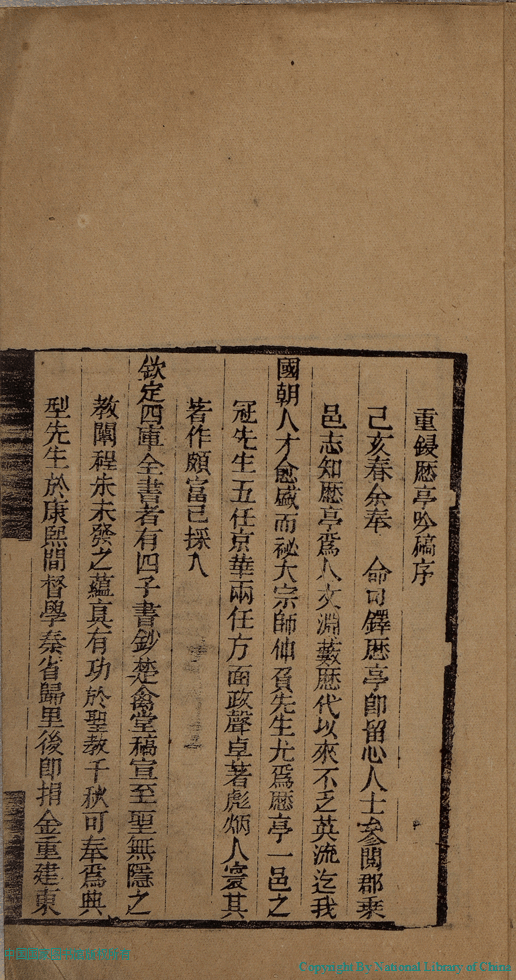 重鋟歴亭吟稿序
己亥春余奉 命司鐸歴亭即留心人士參閱郡乘
邑志知歴亭爲人文淵藪歴代以來不乏英流迄我
國朝人才愈盛而祕大宗師仙負先生尤爲歴亭一邑之
冠先生五任京華兩任方面政聲卓著彪炳人寰其
著作頗富已採入
欽定四庫全書者有四子書鈔楚禽堂稿宣至聖無隱之
教闡程朱未發之蘊真有功於聖教千秋可奉爲典
型先生於康熙間督學秦省歸里後即捐金重建東
Copyright By National Library of China